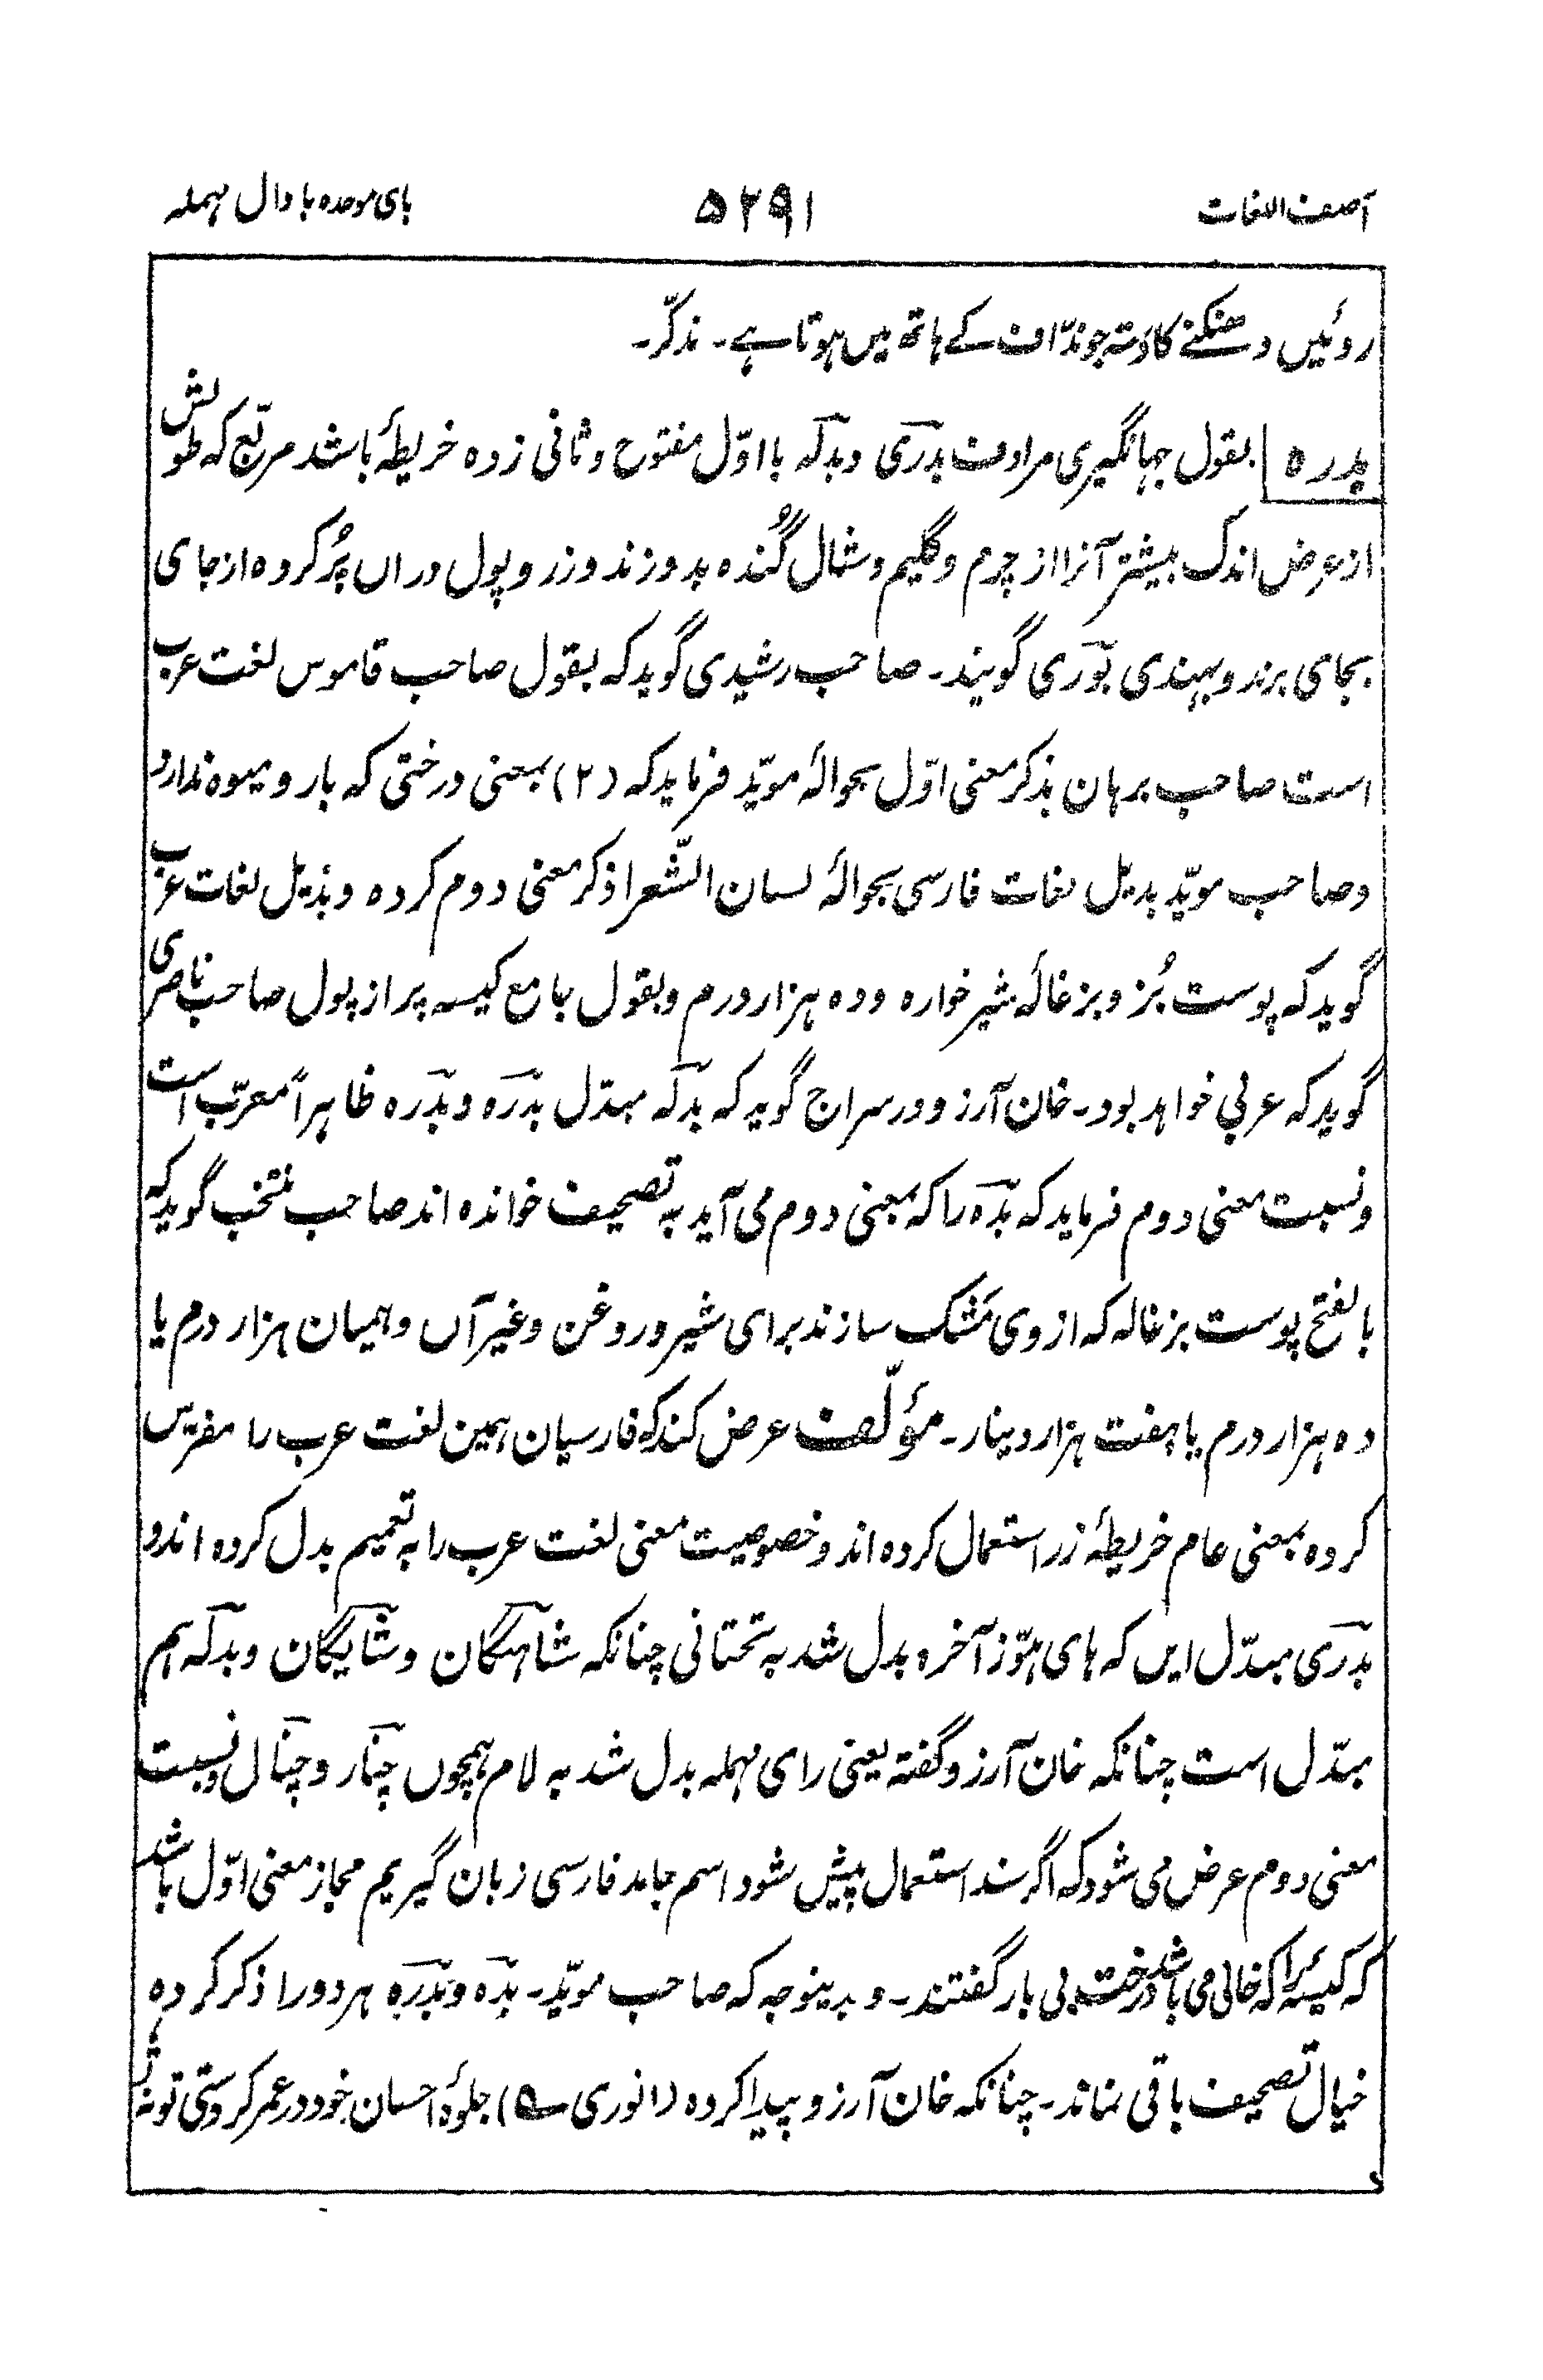 آصف اللغات ۵۲۹۱ بای موحدہ با دال مہملہ
روئیں دھنکنے کا دستہ جو ندّاف کے ہاتھ میں ہوتا ہے۔ مذکّر۔
بدرہ بقول جہانگیری مرادف بدرَی و بدلَہ بااوّل مفتوح و ثانی زدہ خریطۂ باشد مربّع کہ طولش
از عرض اندک بیشتر آنرا از چرم و گلیم و شال گُندہ بدوزند و زر و پول دراں پُر کردہ از جای
بجای برند و بہندی توڑی گویند۔ صاحب رشیدی گوید کہ بقول صاحب قاموس لغت عرب
است صاحب برہان بذکر معنی اوّل بحوالۂ مویّد فرماید کہ (۲) بمعنی درختی کہ بار و میوہ ندارد
و صاحب مویّد بذیل لغات فارسی بحوالۂ لسان الشّعرا ذکر معنی دوم کردہ و بذیل لغات عرب
گوید کہ پوست بُز و بزغالۂ شیر خوارہ و دہ ہزار درم و بقول جامع کیسہ پر از پول صاحب ناصری
گوید کہ عربی خواہد بود۔ خان آرزو در سراج گوید کہ بدلَہ مبدّل بدرَہ و بدرَہ ظاہراً معرّب است
و نسبت معنی دوم فرماید کہ بدَہ را کہ بمعنی دوم می آید بہ تصحیف خواندہ اند صاحب منتخب گوید کہ
بالفتح پوست بزغالہ کہ از وی مَشک سازند برای شیر و روغن و غیر آں و ہمیان ہزار درم یا
دہ ہزار درم یا ہفت ہزار دینار۔ مؤلّف عرض کند کہ فارسیان ہمین لغت عرب را مفرّس
کردہ بمعنی عام خریطۂ زر استعمال کردہ اند و خصوصیت معنی لغت عرب را بہ تعمیم بدل کردہ اند و
بدرَی مبدّل ایں کہ ہای ہوّز آخرہ بدل شد بہ تحتانی چنانکہ شاہگان و شایگان و بدلَہ ہم
مبدّل است چنانکہ خان آرزو گفتہ یعنی رای مہملہ بدل شد بہ لام ہمچوں چنار و چنال و نسبت
معنی دوم عرض می شود کہ اگر سند استعمال پیش شود اسم جامد فارسی زبان گیریم مجاز معنی اوّل باشد
کہ کیسۂ را کہ خالی می باشد درخت بی بار گفتند۔ و بدینوجہ کہ صاحب مویّد۔ بدَہ و بدرَہ ہر دو را ذکر کردہ
خیال تصحیف باقی نماند۔ چنانکہ خان آرزو پیدا کردہ (انوری ؎) جلوۂ احسان خود در عمر کردستی تو نہ